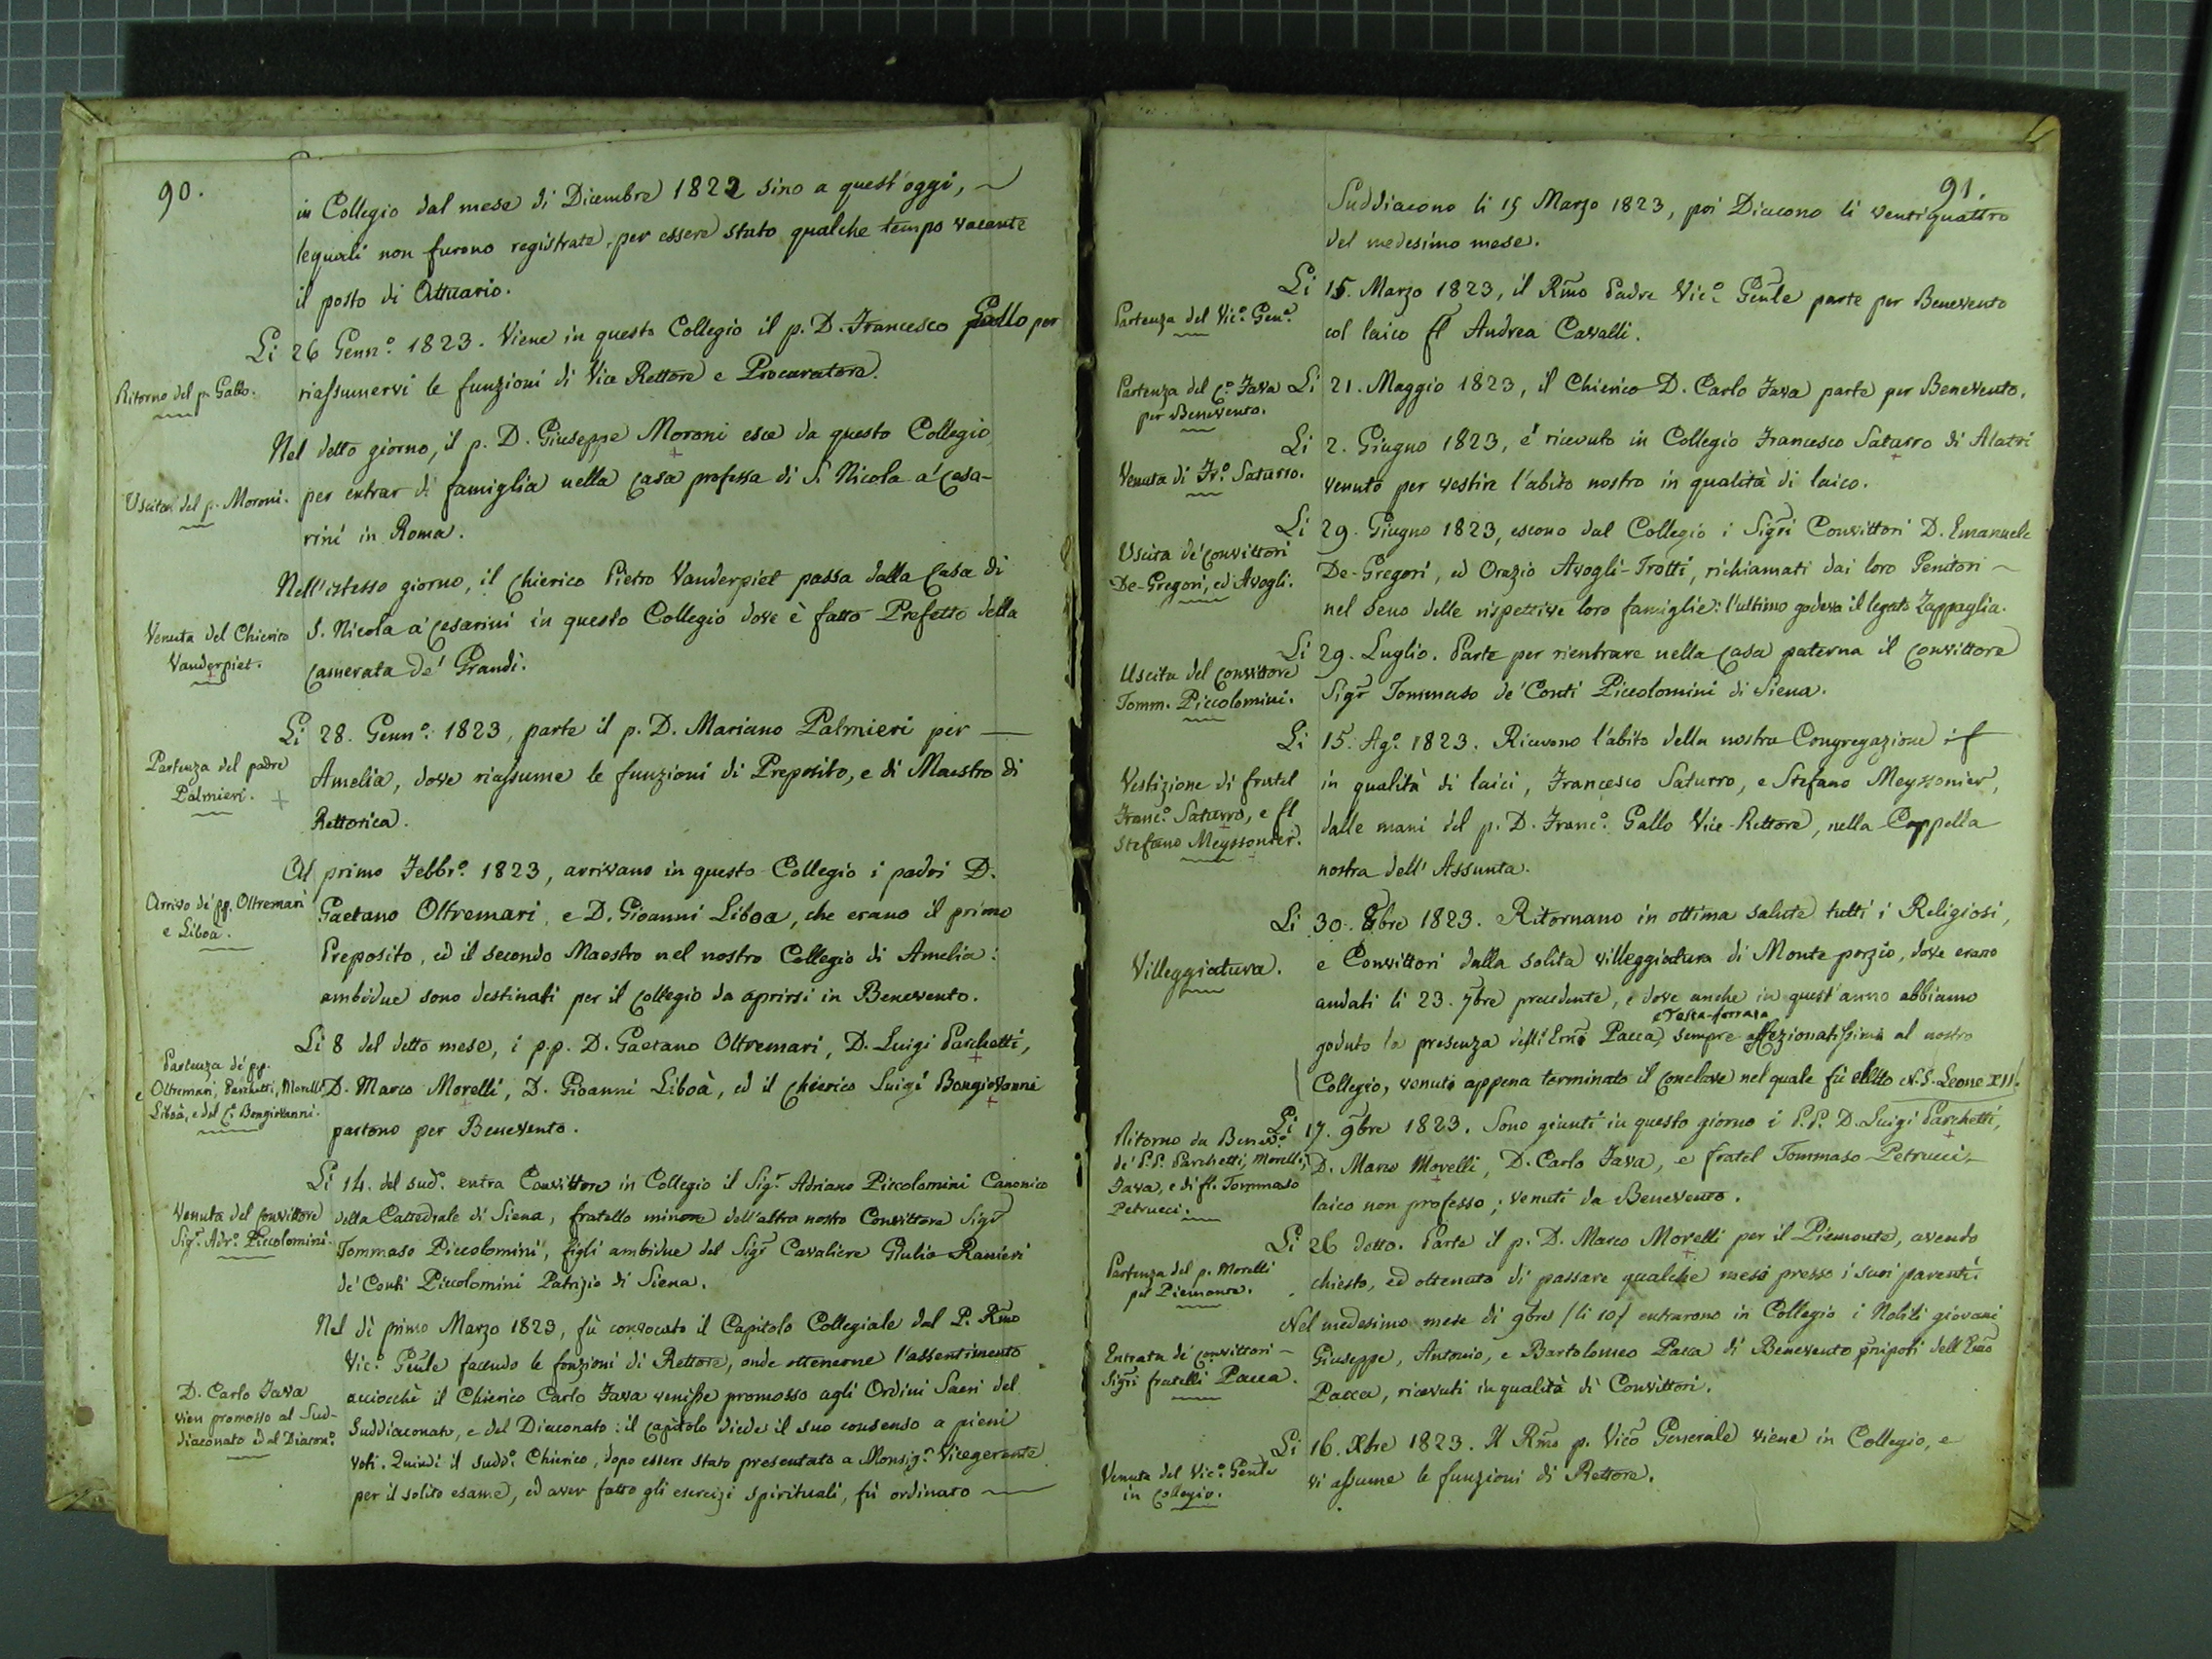 90.
in Collegio dal mese di Dicembre 1822 sino a quest'oggi,
le quali non furono registrate, per essere stato qualche tempo vacante
il posto di Attuario.
Li 26 Genn.º 1823. Viene in questo Collegio il p. D. Francesco Gallo per
Ritorno del p. Gallo.
riassumervi le funzioni di Vice Rettore e Procuratore.
Nel detto giorno, il p. D. Giuseppe Moroni esce da questo Collegio
Uscita del p. Moroni.
per entrar di famiglia nella Casa professa di S. Nicola a' Cesa-
rini in Roma.
Nell'istesso giorno, il Chierico Pietro Vanderpiet passa dalla Casa di
Venuta del Chierico
Vanderpiet.
S. Nicola a' Cesarini in questo Collegio dove è fatto Prefetto della
Camerata de' Grandi.
Li 28. Genn.º 1823, parte il p. D. Mariano Palmieri per —
Partenza del padre
Palmieri. +
Amelia, dove riassume le funzioni di Preposito, e di Maestro di
Rettorica.
Al primo Febbr.º 1823, arrivano in questo Collegio i padri D.
Arrivo de' pp. Oltremari
e Liboà.
Gaetano Oltremari, e D. Gioanni Liboa, che erano il primo
Preposito, ed il secondo Maestro nel nostro Collegio di Amelia:
ambidue sono destinati per il collegio da aprirsi in Benevento.
Li 8 del detto mese, i p.p. D. Gaetano Oltremari, D. Luigi Parchetti,
Partenza de' pp.
Oltremari, Parchetti, Morelli
Liboà, e del C.º Bongiovanni.
D. Marco Morelli, D. Gioanni Liboà, ed il Chierico Luigi Bongiovanni
partono per Benevento.
Li 14. del sud.º entra Convittore in Collegio il Sig.r Adriano Piccolomini Canonico
Venuta del Convittore
Sig.r Adr.º Piccolomini.
della Cattedrale di Siena, fratello minore dell'altro nostro Convittore Sigr
Tommaso Piccolomini, figli ambidue del Sigr Cavaliere Giulio Ranieri
de' Conti Piccolomini Patrizio di Siena.
Nel dì primo Marzo 1823, fù convocato il Capitolo Collegiale dal P. Rmo
Vic.º Gnle facendo le funzioni di Rettore, onde ottenerne l'assentimento
D. Carlo Fava
vien promosso al Sud-
diaconato ed al Diacon.º
acciocchè il Chierico Carlo Fava venisse promosso agli Ordini Sacri del
Suddiaconato, e del Diaconato: il capitolo diede il suo consenso a pieni
voti. Quindi il sudd.º Chierico, dopo essere stato presentato a Monsig.r Vicegerente
per il solito esame, ed aver fatto gli esercizi spirituali, fù ordinato —
91.
Suddiacono li 15 Marzo 1823, poi Diacono li ventiquattro
del medesimo mese.
Li 15. Marzo 1823, il Rmo Padre Vic.º Gnle parte per Benevento
Partenza del Vic.º Gen.e
col laico fl Andrea Cavalli.
Partenza del C.º Fava
per Benevento.
Li 21. Maggio 1823, il Chierico D. Carlo Fava parte per Benevento.
Li 2. Giugno 1823, è ricevuto in Collegio Francesco Saturro di Alatri
Venuta di Fr.º Saturro.
venuto per vestire l'abito nostro in qualità di laico.
Li 29. Giugno 1823, escono dal Collegio i Sigri Convittori D. Emanuele
Uscita de' convittori
De-Gregori, ed Avogli.
De-Gregori, ed Orazio Avogli-Trotti, richiamati dai loro Genitori ~
nel seno delle rispettive loro famiglie: l'ultimo godeva il legato Zappaglia.
Li 29. Luglio. Parte per rientrare nella Casa paterna il Convittore
Uscita del Convittore
Tomm. Piccolomini.
Sigr Tommaso de' Conti Piccolomini di Siena.
Li 15. Ag.º 1823. Ricevono l'abito della nostra Congregazione
Vestizione di fratel
Franc.º Saturro, e fl
Stefano Meyssonier.
in qualità di laici, Francesco Saturro, e Stefano Meyssonier,
dalle mani del p. D. Franc.º Gallo Vice-Rettore, nella Cappella
nostra dell'Assunta.
Li 30. 8bre 1823. Ritornano in ottima salute tutti i Religiosi,
Villeggiatura.
e Convittori dalla solita villeggiatura di Monte porzio, dove erano
andati li 23. 7bre precedente, e dove anche in quest'anno abbiamo
e Testa-ferrata
goduto la presenza degli Emi Pacca, sempre affezionatissimi al nostro
Collegio, venuti appena terminato il Conclave nel quale fù eletto N. S. Leone XII.
Li 17. 9bre 1823. Sono giunti in questo giorno i P.P. D. Luigi Parchetti,
Ritorno da Benev.º
de' P.P. Parchetti, Morelli,
Fava, e di fl. Tommaso
Petrucci.
D. Marco Morelli, D. Carlo Fava, e fratel Tommaso Petrucci
laico non professo; venuti da Benevento.
Li 26 detto. Parte il p. D. Marco Morelli per il Piemonte, avendo
Partenza del p. Morelli
pel Piemonte.
chiesto, ed ottenuto di passare qualche mese presso i suoi parenti
Nel medesimo mese di 9bre (li 10) entrarono in Collegio i Nobili giovani
Entrata de' convittori ~
Sigri fratelli Pacca.
Giuseppe, Antonio, e Bartolomeo Pacca di Benevento pnipoti dell'Emo
Pacca, ricevuti in qualità di Convittori.
Li 16. Xbre 1823. Il Rmo p. Vico Generale viene in Collegio, e
Venuta del Vic.º Genle
in Collegio.
vi assume le funzioni di Rettore.